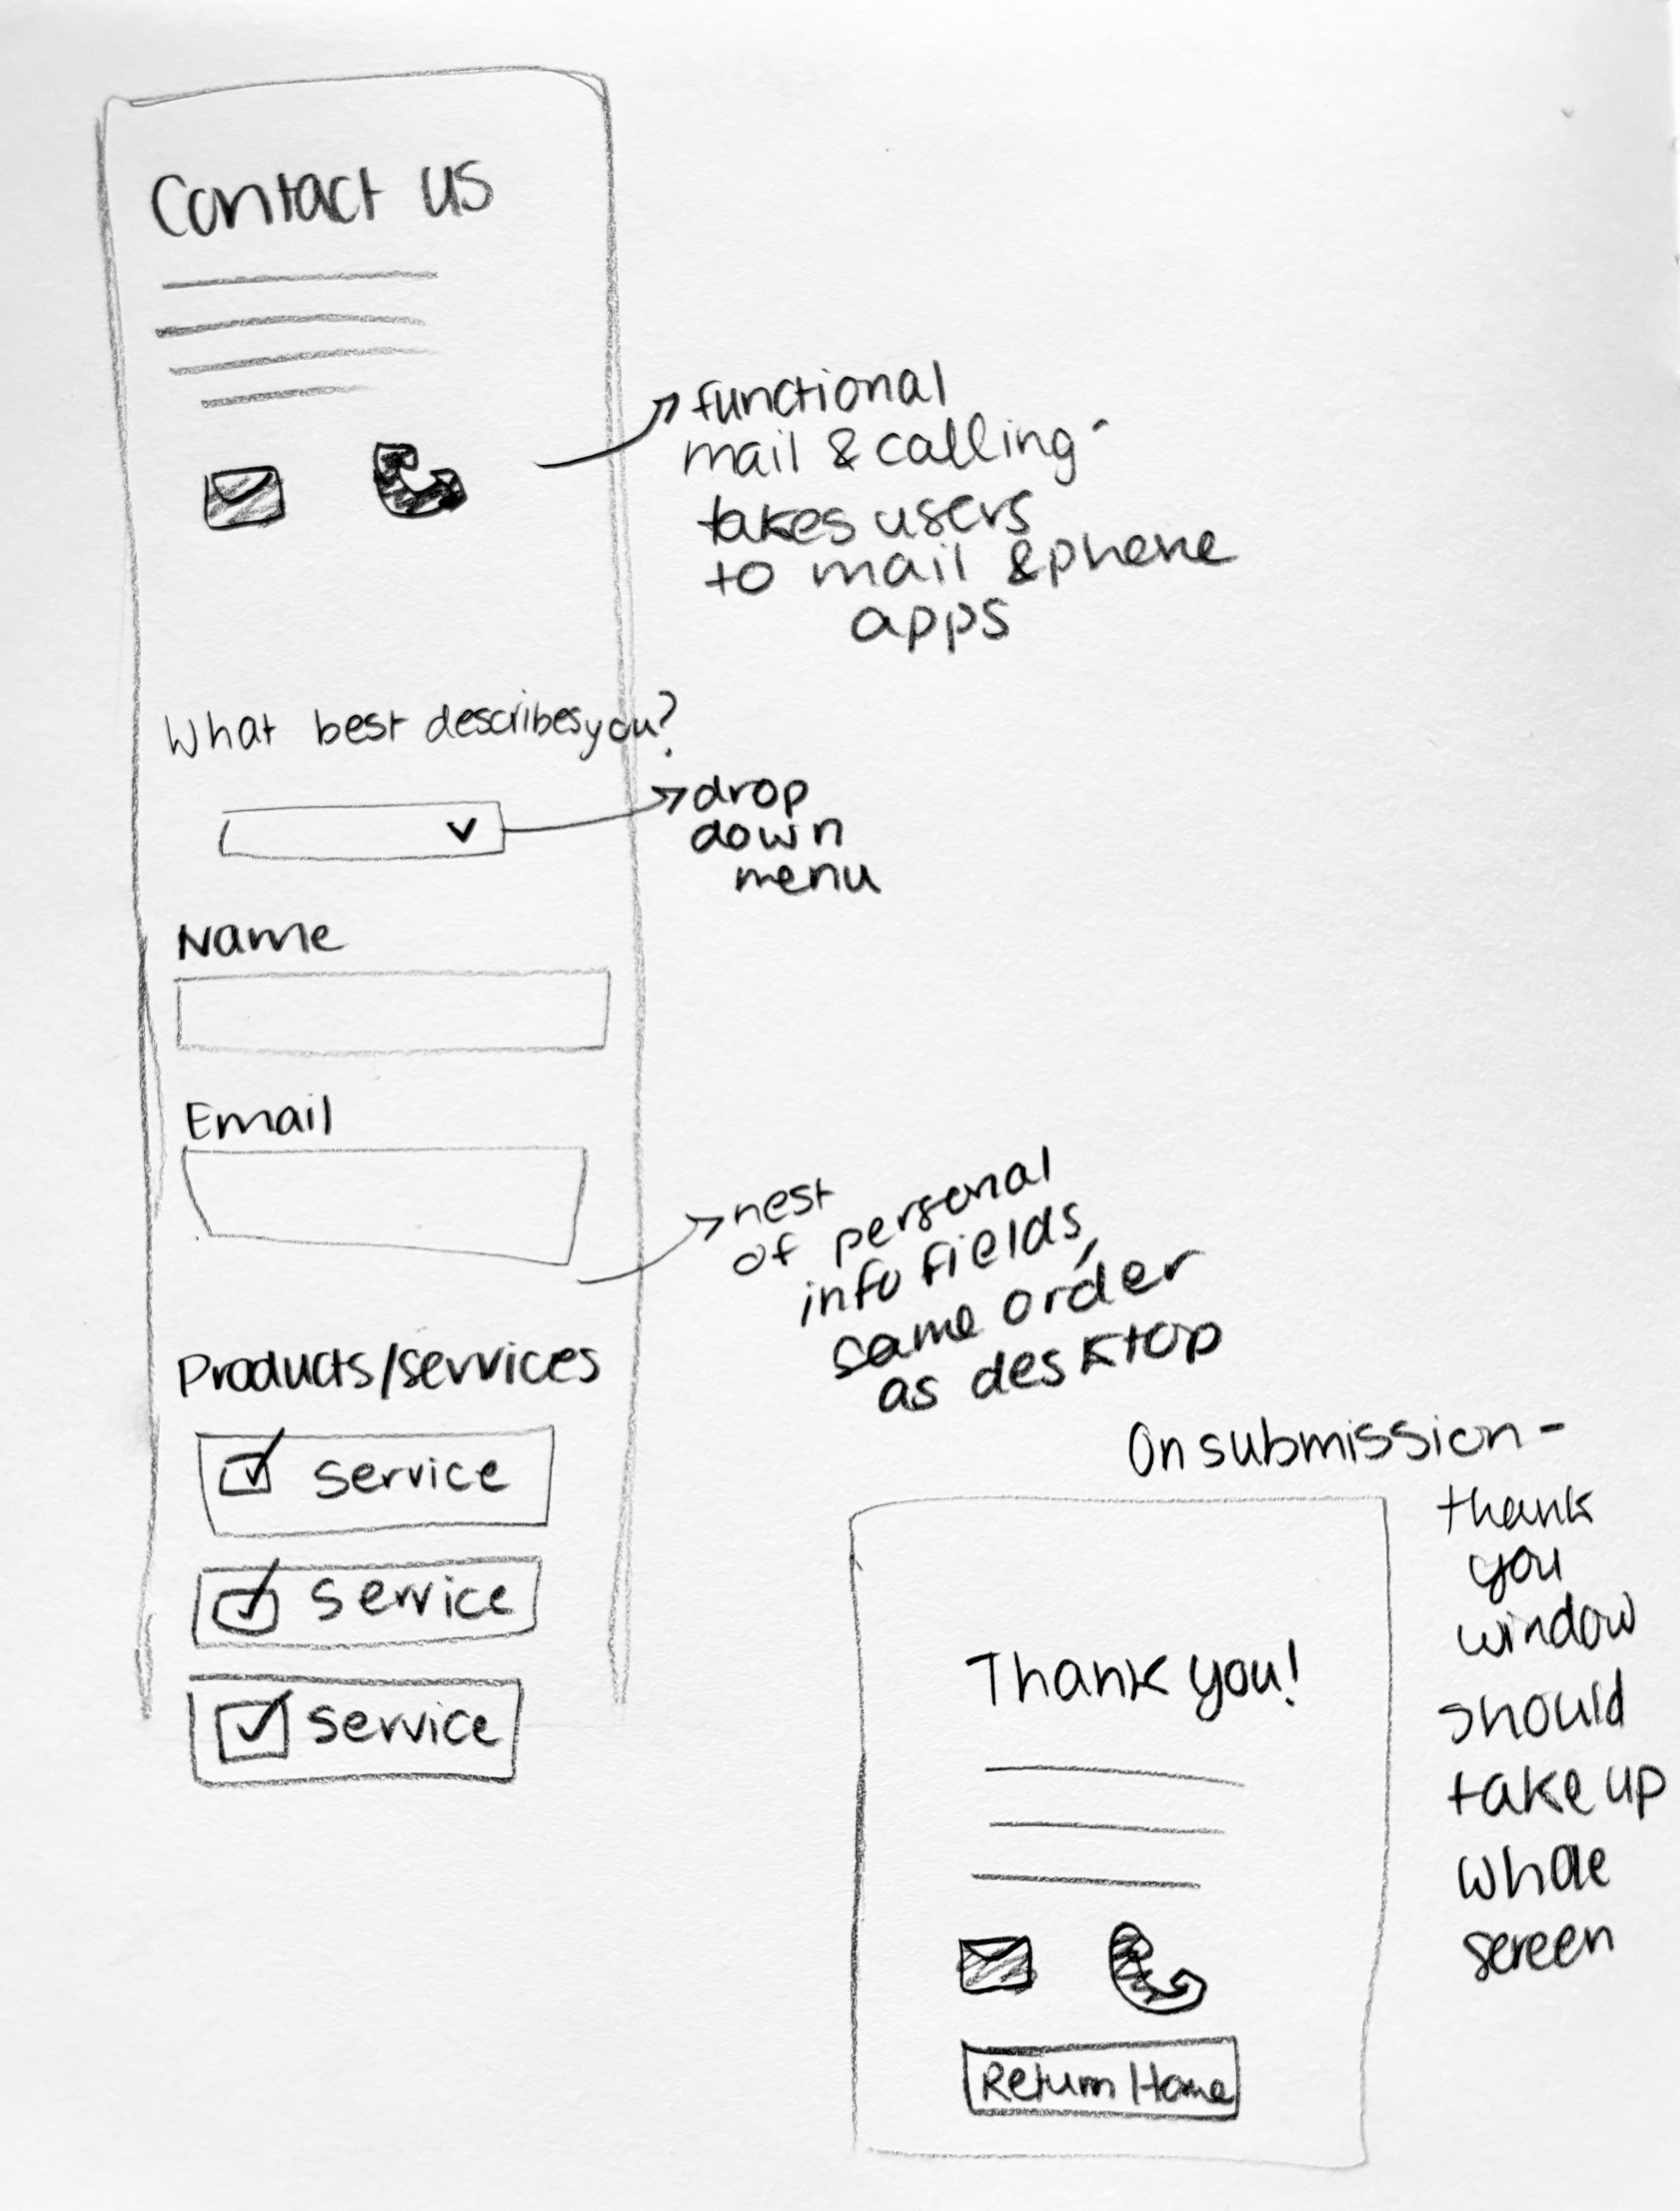 Contact us
functional
mail & calling -
takes users
to mail & phone
apps
What best describes you?
drop
down
menu
Name
Email
nest
of personal
info fields,
same order
as desktop
Products/services
service
service
service
On submission -
thank
you
window
should
take up
whole
screen
Thank you!
Return Home